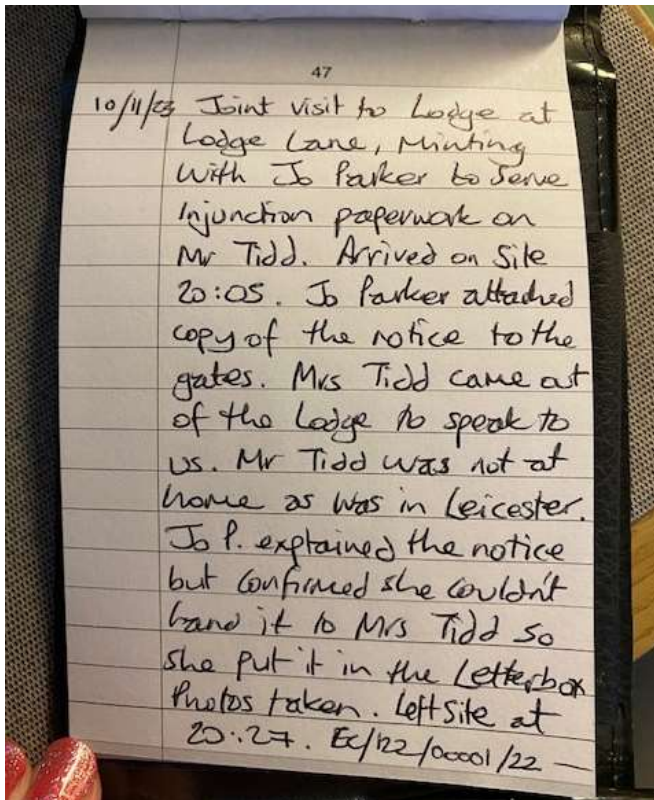 47
10/11/23 Joint visit to Lodge at
Lodge Lane, Minting
with Jo Parker to serve
Injunction paperwork on
Mr Tidd. Arrived on site
20:05. Jo Parker attached
copy of the notice to the
gates. Mrs Tidd came out
of the Lodge to speak to
us. Mr Tidd was not at
home as was in Leicester.
Jo P. explained the notice
but confirmed she couldn't
hand it to Mrs Tidd so
she put it in the Letterbox
Photos taken. Left site at
20:27. EC/122/00001/22 —